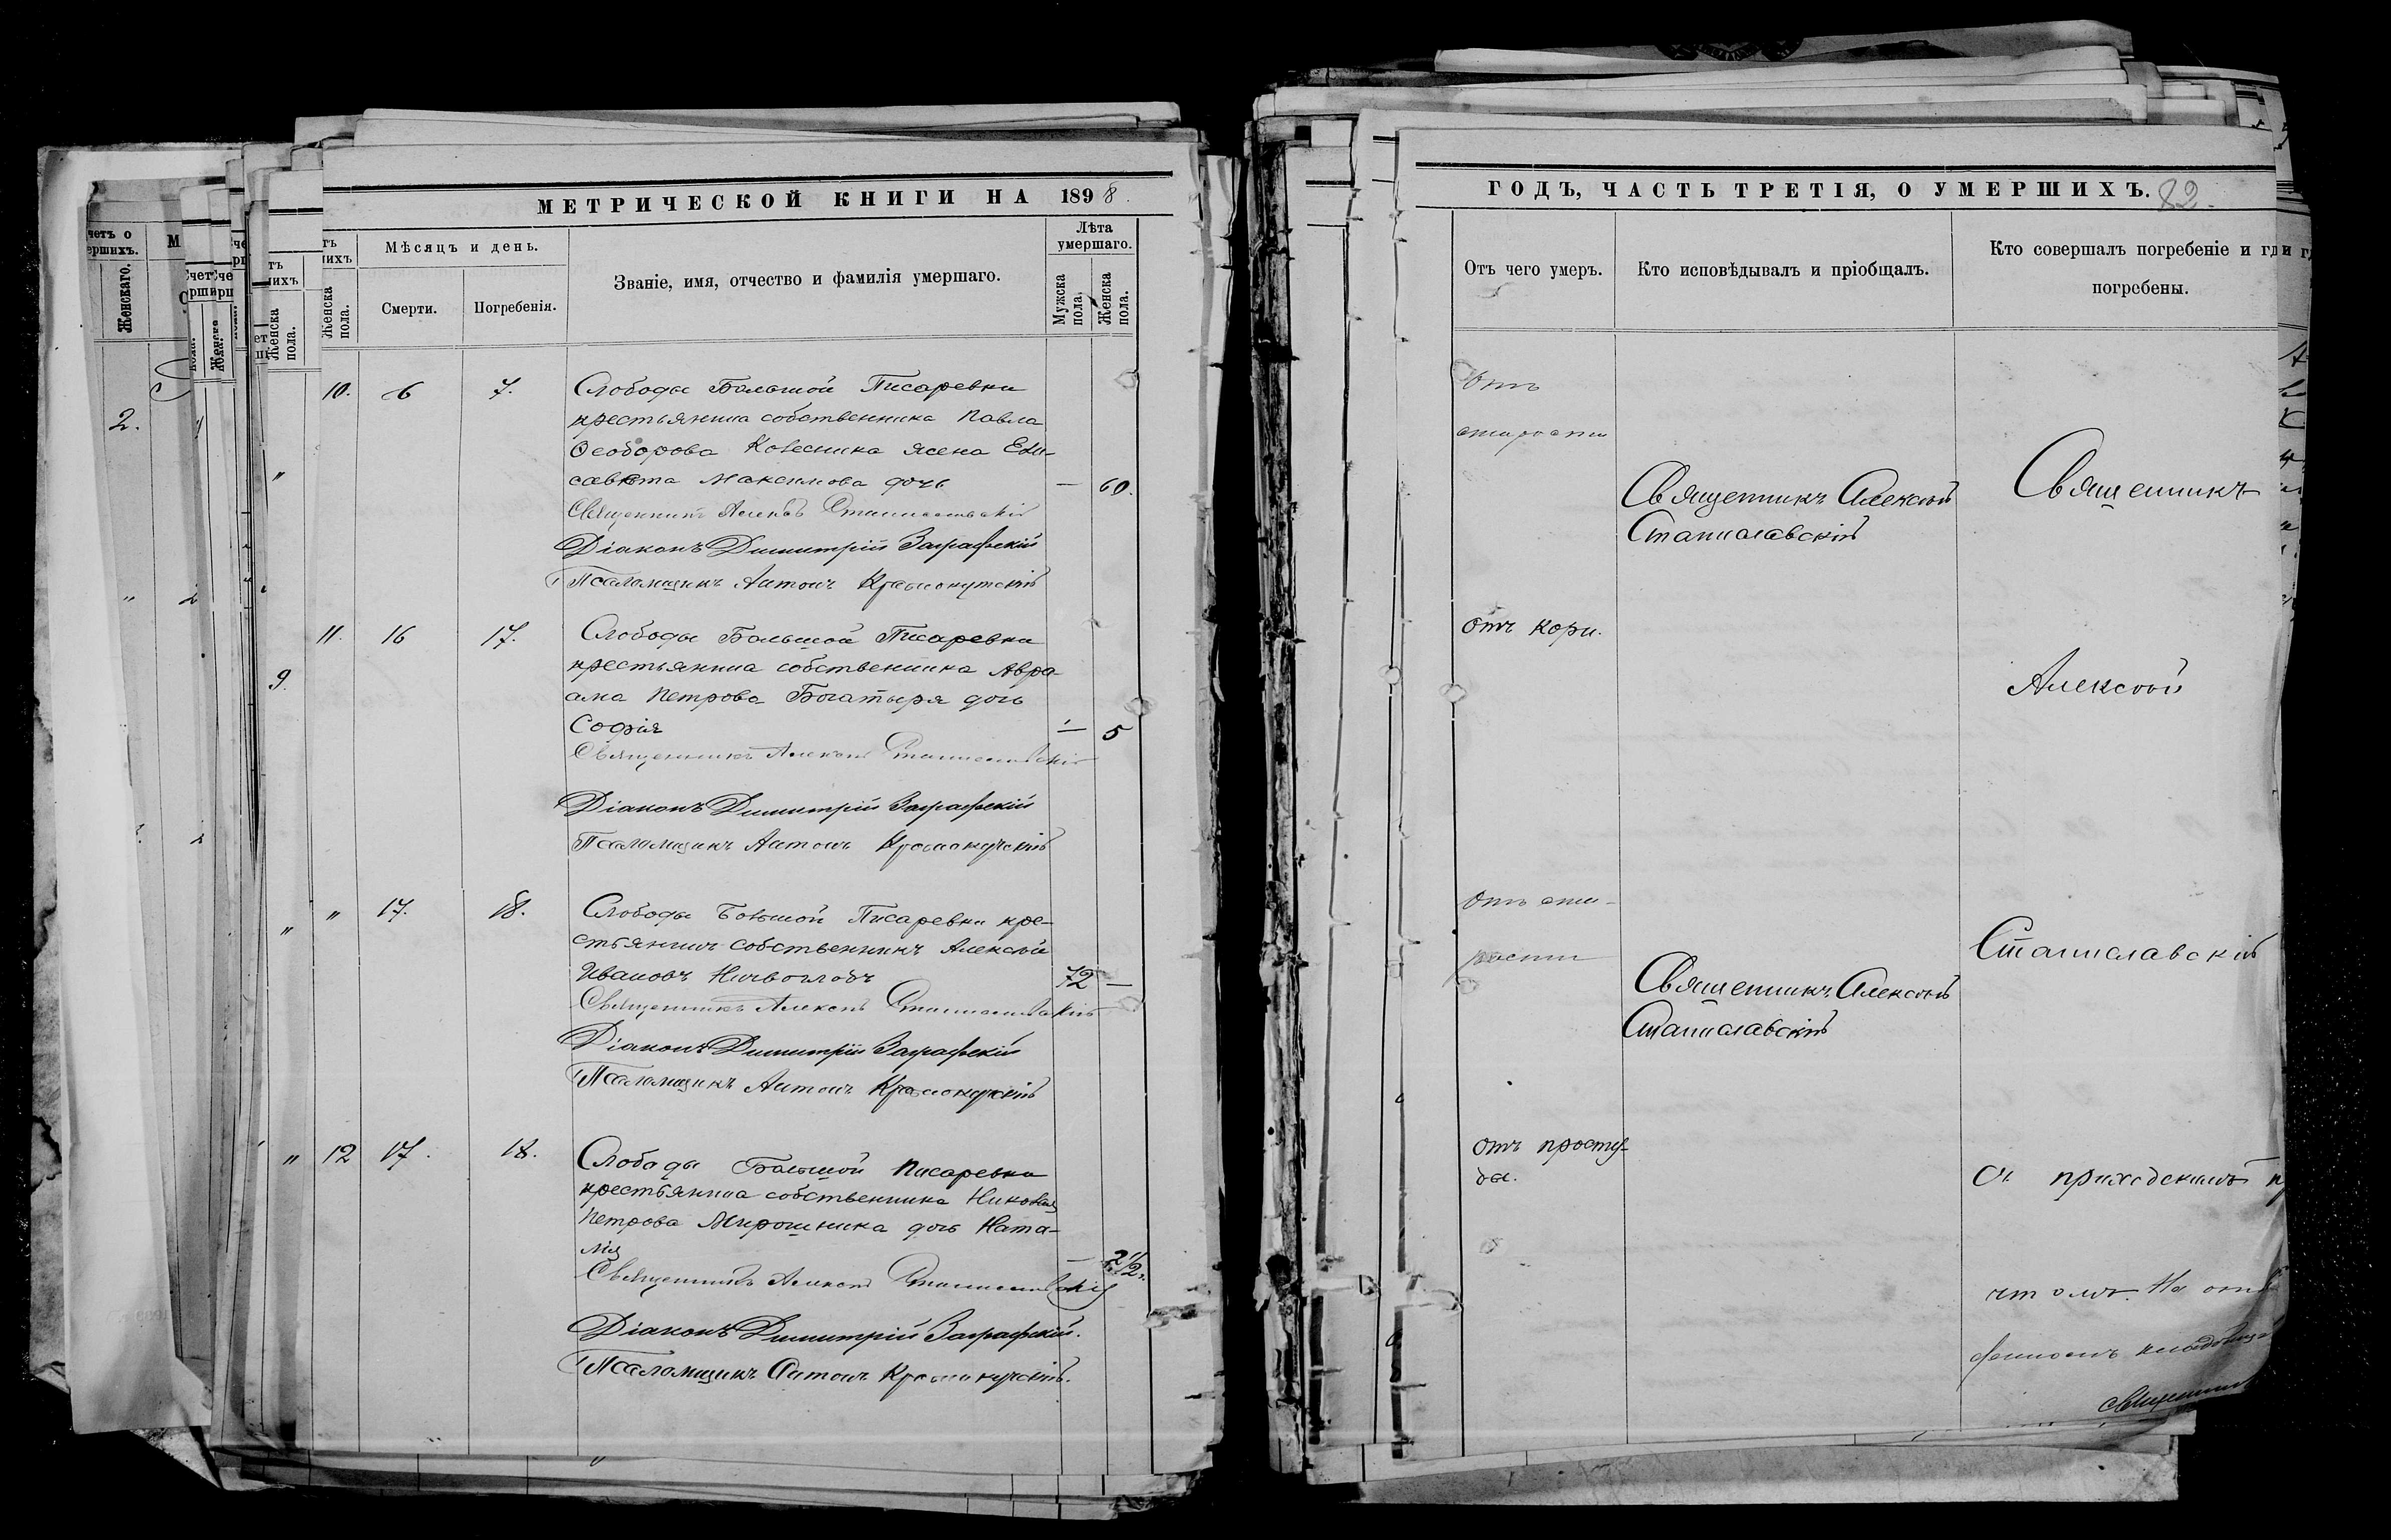 МЕТРИЧЕСКОЙ КНИГИ НА 1898.
Мѣсяцъ и день.
Званіе, имя, отчество и фамилія умершаго.
Лѣта умершаго.
Женска пола.
Смерти.
Погребенія.
Мужска пола.
Женска пола.
10. 6 7. Слободы Большой Писаревки
крестьянина собственника Павла
Ѳеодорова Колесника жена Ели-
савета Максимова дочь — 60.
Священникъ Алексѣй Станиславскій
Діаконъ Димитрій Заграфскій
Псаломщикъ Антонъ Краснокутскій
11. 16 17. Слободы Большой Писаревки
крестьянина собственника Авра-
ама Петрова Богатыря дочь
Софія — 5
Священникъ Алексѣй Станиславскій
Діаконъ Димитрій Заграфскій
Псаломщикъ Антонъ Краснокутскій
" 17. 18. Слободы Большой Писаревки кре-
стьянинъ собственникъ Алексѣй
Ивановъ 72 —
Священникъ Алексѣй Станиславскій
Діаконъ Димитрій Заграфскій
Псаломщикъ Антонъ Краснокутскій
" 12 17. 18. Слободы Большой Писаревки
крестьянина собственника Николая
Петрова Мирошника дочь Ната-
лія — 2 1/2
Священникъ Алексѣй Станиславскій
Діаконъ Димитрій Заграфскій.
Псаломщикъ Антонъ Краснокутскій.
ГОДЪ, ЧАСТЬ ТРЕТІЯ, О УМЕРШИХЪ. 82.
Отъ чего умеръ.
Кто исповѣдывалъ и пріобщалъ.
Кто совершалъ погребеніе и гдѣ
погребены.
Отъ
старости
Священникъ Алексѣй
Станиславскій
Священникъ
отъ кори.
Алексѣй
Отъ ста-
рости
Станиславскій
Священникъ Алексѣй
Станиславскій
отъ просту-
ды.
съ приходскимъ
чтомъ. На